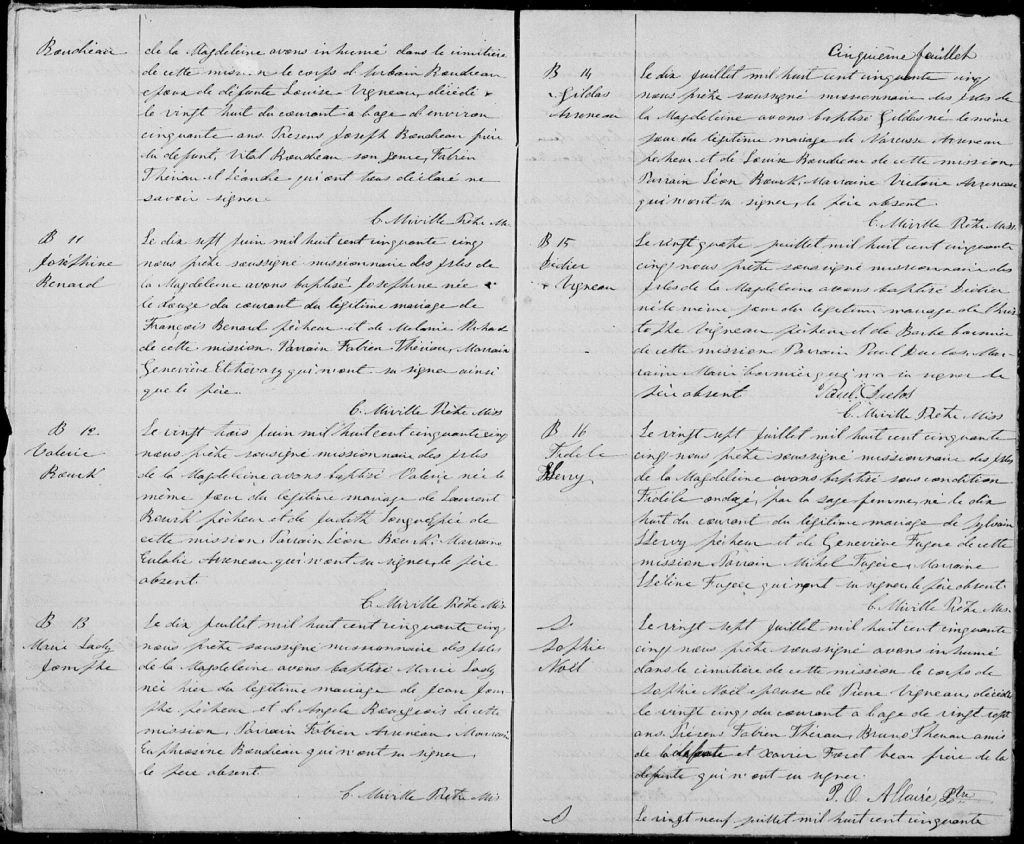 Boudreau
de la Magdeleine avons inhumé dans le cimitière
de cette mission le corps d'Urbain Boudreau
époux de défunte Louise Vigneau, décédé
le vingt huit du courant a l'age d'environ
cinquante ans. Présens Joseph Boudreau frère
du défunt, Vital Boudreau son genre, Fabien
Thériau et Léandre qui ont tous déclaré ne
savoir signer.
C. Miville Prêtre Mis.
B 11
Joséphine
Renard
Le dix sept Juin mil huit cent cinquante cinq
nous prêtre soussigné missionnaire des Isles de
la Magdeleine avons baptisé Josephine née
le douze du courant du légitime mariage de
François Benard pêcheur et de Mélanie
de cette mission. Parrain Fabien Thériau, Marraine
Geneviève Etchevary qui n'ont su signer ainsi
que le père.
C. Miville Prêtre Miss
B 12
Valérie
Bourk
Le vingt trois Juin mil huit cent cinquante cinq
nous prêtre sousigné missionnaire des Isles
de la Magdeleine avons baptisé Valérie née le
même jour du légitime mariage de Laurent
Bourk pêcheur et de Judith Longuépée de
cette mission. Parrain Léon Bourk. Marraine
Eulalie Arseneau qui n'ont su signer, le père
absent.
C. Miville Prêtre Mis
B 13
Marie Lady
Jomphe
Le dix juillet mil huit cent cinquante cinq
nous prêtre soussigné missionnaire des Isles
de la Magdeleine avons baptisé Marie Lady
née hier du légitime mariage de Jean Jom-
phe pêcheur et d'Angèle Bourgeois de cette
mission, Parrain Fabien Arseneau, Marraine
Euphrosine Boudreau qui n'ont su signer
le père absent.
C. Miville Prêtre Mis
Cinquième feuillet
B 14
Gildas
Arseneau
Le dix Juillet mil huit cent cinquante cinq
nous prêtre soussigné missionnaire des Isles de
la Magdeleine avons baptisé Gildas né le même
jour du légitime mariage de Narcisse Arseneau
pêcheur et de Louise Boudreau de cette mission,
Parrain Léon Bourk, Marraine Victoire Arseneau
qui n'ont su signer, le père absent.
C. Miville Prêtre Miss.
B 15
Didier
Vigneau
Le vingt quatre juillet mil huit cent cinquante
cinq nous prêtre soussigné missionnaire des
Isles de la Magdeleine avons baptisé Didier
né le même jour du légitime mariage de Chris-
tophe Vigneau pêcheur et de Barbe Cormier
de cette mission Parrain Paul Duclos, Mar-
raine Marie Cormier qui n'a su signer le
père absent Paul Duclos
C. Miville Prêtre Miss
B 16
Fidèle
Hervy
Le vingt sept juillet mil huit cent cinquante
cinq nous prêtre soussigné missionnaire des Isles
de la Magdeleine avons baptisé sous condition
Fidèle ondoyé, par la sage femme, né le dix
huit du courant du légitime mariage de Sylvain
Hervy pêcheur et de Geneviève Fugère de cette
mission Parrain Michel Fugère, Marraine
Hélène Fugère qui n'ont su signer le père absent
C. Miville Prêtre Mis.
S.
Sophie
Noël
Le vingt sept Juillet mil huit cent cinquante
cinq nous prêtre soussigné avons inhumé
dans le cimitière de cette mission le corps de
Sophie Noël épouse de Pierre Vigneau, décédée
le vingt cinq du courant a l'age de vingt sept
ans. Présens Fabien Thériau, Bruno Thériau amis
de la défunte et Xavier Foret beau frère de la
défunte qui n'ont su signer.
P. O. Allaire Ptre
S
Le vingt neuf juillet mil huit cent cinquante